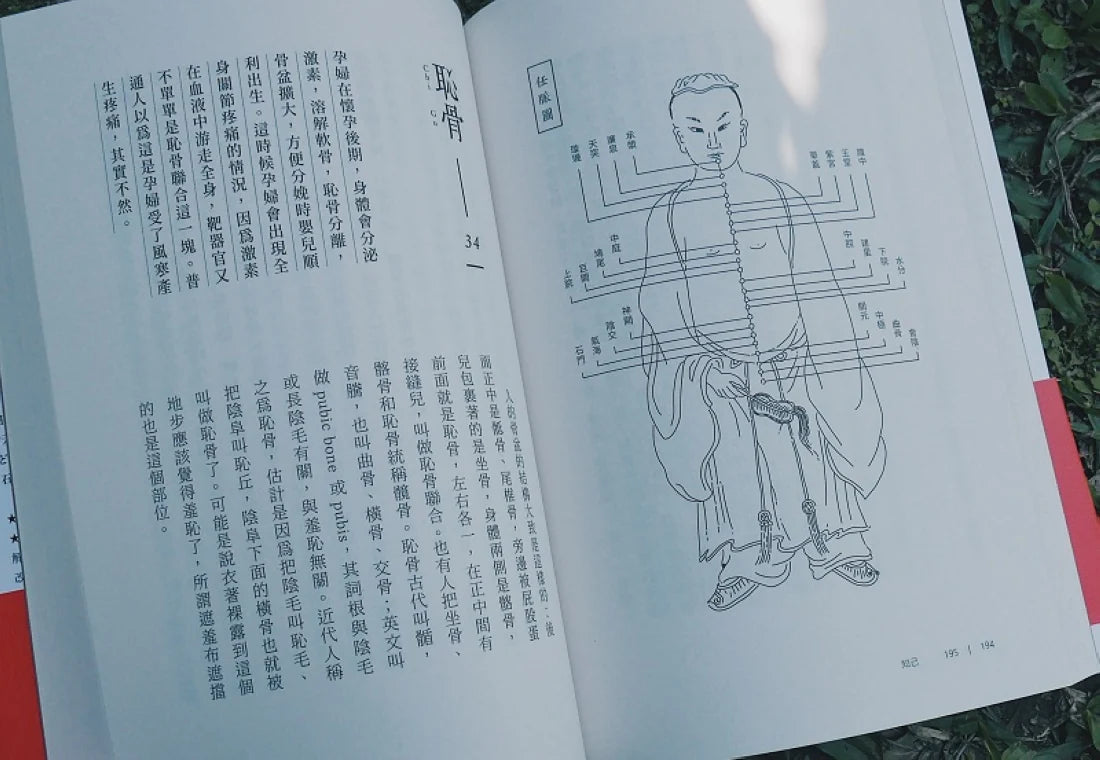 任脈圖
膻中
玉堂
紫宮
華蓋
承漿
廉泉
天突
璇璣
水分
下脘
建里
中脘
中庭
鳩尾
巨闕
上脘
會陰
曲骨
中極
關元
神闕
陰交
氣海
石門
知己 195 | 194
恥骨 — 34
Chi Gu
孕婦在懷孕後期，身體會分泌
激素，溶解軟骨，恥骨分離，
骨盆擴大，方便分娩時嬰兒順
利出生。這時候孕婦會出現全
身關節疼痛的情況，因爲激素
在血液中游走全身，靶器官又
不單單是恥骨聯合這一塊。普
通人以爲這是孕婦受了風寒產
生疼痛，其實不然。
人的骨盆的結構大致是這樣的：後
面正中是骶骨、尾椎骨，旁邊被屁股蛋
兒包裹著的是坐骨，身體兩側是髂骨，
前面就是恥骨，左右各一，在正中間有
接縫兒，叫做恥骨聯合。也有人把坐骨、
髂骨和恥骨統稱髖骨。恥骨古代叫䯒，
音騰，也叫曲骨、橫骨、交骨；英文叫
做 pubic bone 或 pubis，其詞根與陰毛
或長陰毛有關，與羞恥無關。近代人稱
之爲恥骨，估計是因爲把陰毛叫恥毛、
把陰阜叫恥丘，陰阜下面的橫骨也就被
叫做恥骨了。可能是說衣著裸露到這個
地步應該覺得羞恥了，所謂遮羞布遮擋
的也是這個部位。